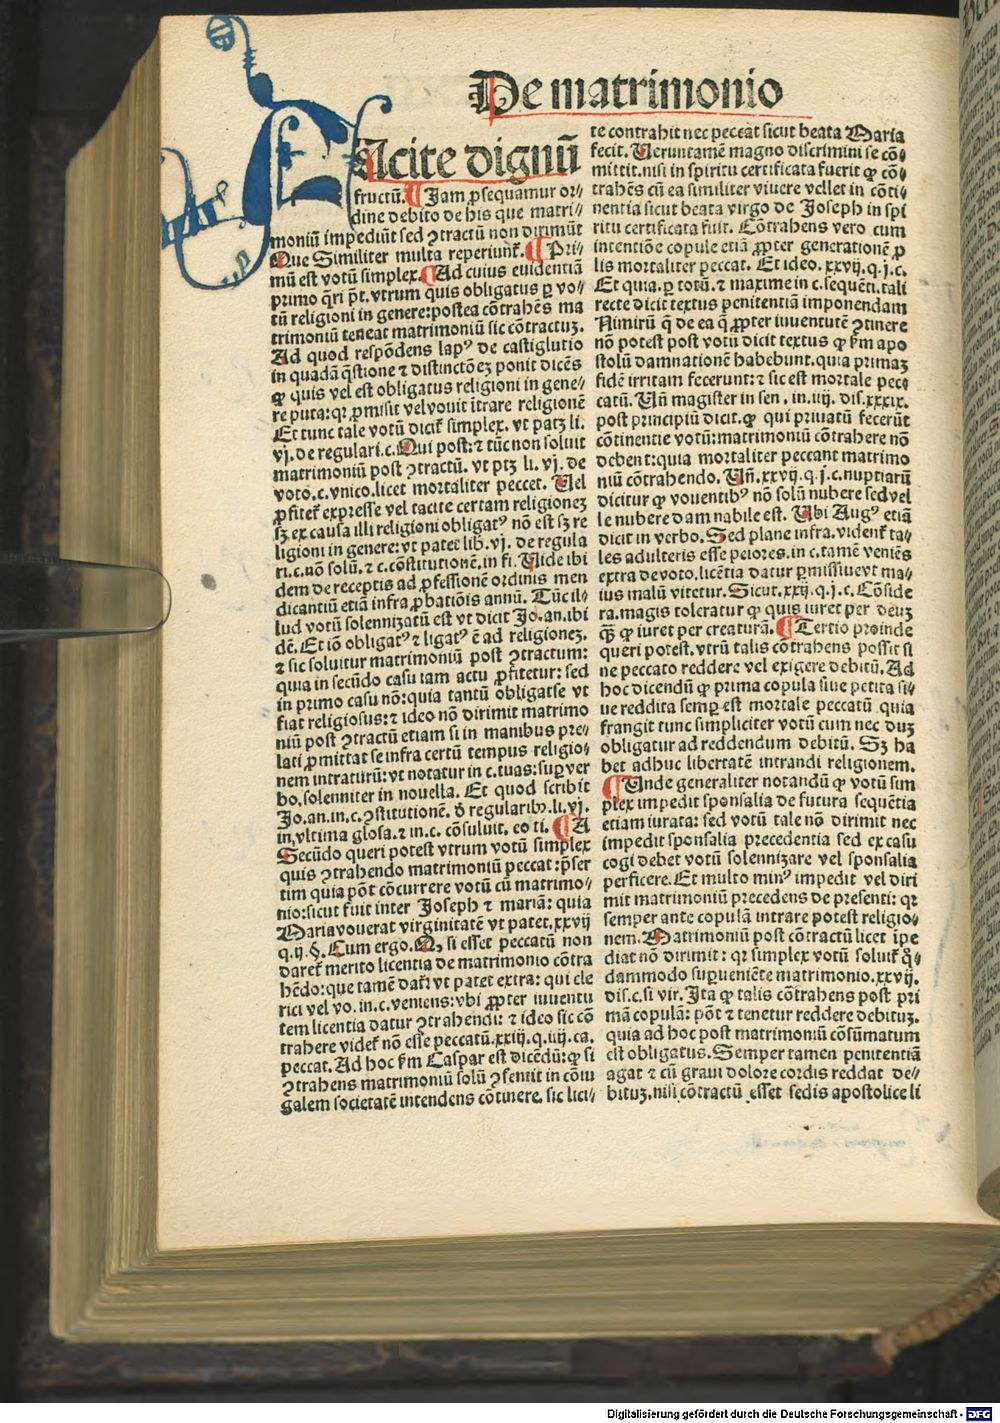 De matrimonio
FAcite dignū
fructū. ¶ Jam ꝓsequamur or⸗
dine debito de his que matri⸗
moniū impediūt sed ꝯtractū non dirimūt
Que Similiter multa reperiunt᷑. ¶ Pri⸗
mū est votū simplex. ¶ Ad cuius euidentiā
primo q̄ri p̄t. vtrum quis obligatus ꝑ vo⸗
tū religioni in genere: postea cōtrahēs ma
trimoniū teneat matrimoniū sic cōtractuꝫ.
Ad quod respōdens lapꝰ de castiglutio
in quadā q̄stione ⁊ distinctōeꝫ ponit dicēs
ꝙ quis vel est obligatus religioni in gene⸗
re puta: qꝛ ꝓmisit vel vouit ītrare religionē
Et tunc tale votū dicit᷑ simplex. vt patꝫ li.
vj. de regulari. c. Qui post: ⁊ tūc non soluit
matrimoniū post ꝯtractū. vt ptꝫ li. vj. de
voto. c. vnico. licet mortaliter peccet. Uel
ꝓfitet᷑ expresse vel tacite certam religioneꝫ
sꝫ ex causa illi religioni obligatꝰ nō est sꝫ re
ligioni in genere: vt patet lib. vj. de regula
ri. c. nō solū. ⁊ c. cōstitutionē. in fi. Uide ibi
dem de receptis ad ꝓfessionē ordinis men
dicantiū etiā infra ꝓbatiōis annū. Tūc il⸗
lud votū solennizatū est vt dicit Jo. an. ibi
dē. Et iō obligatꝰ ⁊ ligatꝰ ē ad religioneꝫ.
⁊ sic soluitur matrimoniū post ꝯtractum:
quia in secūdo casu iam actu ꝓfitetur: sed
in primo casu nō: quia tantū obligatse vt
fiat religiosus: ⁊ ideo nō dirimit matrimo
niū post ꝯtractū etiam si in manibus pre⸗
lati ꝓmittat se infra certū tempus religio⸗
nem intraturū: vt notatur in c. tuas: suꝑ ver
bo. solenniter in nouella. Et quod scribit
Jo. an. in. c. ꝯstitutionē. ꝺ̄ regularibꝰ. li. vj.
in, vltima glosa. ⁊ in. c. cōsuluit. eo ti. ¶ A
Secūdo queri potest vtrum votū simplex
quis ꝯtrahendo matrimoniū peccat: p̄ser
tim quia pōt cōcurrere votū cū matrimo⸗
nio: sicut fuit inter Joseph ⁊ mariā: quia
Maria vouerat virginitatē vt patet. xxvij
q. ij. §. Cum ergo. Nā si esset peccatū non
daret᷑ merito licentia de matrimonio cōtra
hēdo: que tamē dat᷑: vt patet extra: qui cle
rici vel vo. in. c. veniens: vbi ꝓpter iuuentu
tem licentia datur ꝯtrahendi: ⁊ ideo sic cō
trahere videt᷑ nō esse peccatū. xxiij. q. iiij. ca.
peccat. Ad hoc ẜm Caspar est dicēdū: ꝙ si
ꝯtrahens matrimoniū solū ꝯsentit in cōiu
galem societatē intendens cōtinere. sic lici⸗
te contrahit nec peccat sicut beata Maria
fecit. Ueruntamē magno discrimini se cō⸗
mittit. nisi in spiritu certificata fuerit ꝙ cō⸗
trahēs cū ea similiter viuere vellet in cōti⸗
nentia sicut beata virgo de Joseph in spi
ritu certificata fuit. Cōtrahens vero cum
intentiōe copule etiā ꝓpter generationē ꝓ
lis mortaliter peccat. Et ideo. xxvij. q. j. c.
Et quia. ꝑ totū. ⁊ maxime in c. sequēti. tali
recte dicit textus penitentiā imponendam
Nimirū q̄ de ea q̄ ꝓpter iuuentutē ꝯtinere
nō potest post votū dicit textus ꝙ ẜm apo
stolū damnationē habebunt. quia primaꝫ
fidē irritam fecerunt: ⁊ sic est mortale pec⸗
catū. Uñ magister in sen. in. iiij. dis. xxxix.
post principiū dicit. ꝙ qui priuatū fecerūt
cōtinentie votū: matrimoniū cōtrahere nō
debent: quia mortaliter peccant matrimo
niū cōtrahendo. Uñ. xxvij. q. j. c. nuptiarū
dicitur ꝙ vouentibꝰ nō solū nubere sed vel
le nubere damnabile est. Ubi Augꝰ etiā
dicit in verbo. Sed plane infra. vident᷑ ta⸗
les adulteris esse peiores. in c. tamē veniēs
extra de voto. licētia datur ꝑmissiue vt ma⸗
ius malū vitetur. Sicut. xxij. q. j. c. Cōside
ra. magis toleratur ꝙ quis iuret per deuꝫ
q̄ꝫ ꝙ iuret per creaturā. ¶ Tertio proinde
queri potest. vtrū talis cōtrahens possit si
ne peccato reddere vel exigere debitū. Ad
hoc dicendū ꝙ prima copula siue petita si⸗
ue reddita semꝑ est mortale peccatū quia
frangit tunc simpliciter votū cum nec duꝫ
obligatur ad reddendum debitū. Sꝫ ha
bet adhuc libertatē intrandi religionem.
¶ Unde generaliter notandū ꝙ votū sim
plex impedit sponsalia de futura sequētia
etiam iurata: sed votū tale nō dirimit nec
impedit sponsalia precedentia sed ex casu
cogi debet votū solennizare vel sponsalia
perficere. Et multo minꝰ impedit vel diri
mit matrimoniū precedens de presenti: qꝛ
semper ante copulā intrare potest religio⸗
nem. Matrimoniū post cōtractū licet īpe
diat nō dirimit: qꝛ simplex votū soluit᷑ q̄⸗
dammodo suꝑueniēte matrimonio. xxvij.
dis. c. si vir. Ita ꝙ talis cōtrahens post pri
mā copulā: pōt ⁊ tenetur reddere debituꝫ.
quia ad hoc post matrimoniū cōsūmatum
est obligatus. Semper tamen penitentiā
agat ⁊ cū graui dolore cordis reddat de⸗
bituꝫ. nisi cōtractū esset sedis apostolice li
Digitalisierung gefördert durch die Deutsche Forschungsgemeinschaft - DFG